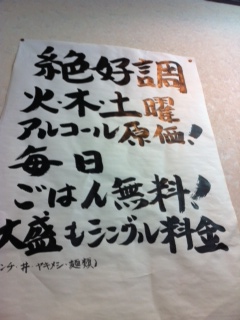 絶好調
火・木・土曜
アルコール原価!
毎日
ごはん無料!
大盛もシングル料金
ンチ・丼・ヤキメシ・麺類)